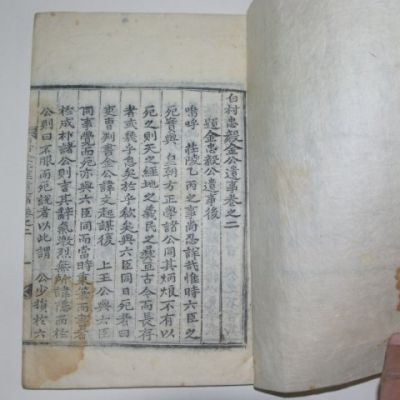 白村忠毅金公遺事卷之二
題金忠毅公遺事後
嗚呼 莊陵乙丙之事尚忍詳哉惟時六臣之
死實與 皇朝方正學諸公同其炳烺不有以
死之則天之經地之義民之彛亘古今而長存
者或幾乎息矣於乎欷矣與六臣同日死者曰
吏曹判書金公諱文起謀復 上王公與六臣
同事覺而死亦與六臣同而當時
於成朴諸公則言其辭氣激烈無所諱隱而於
公則曰不服而死說者以此謂 公少損於六